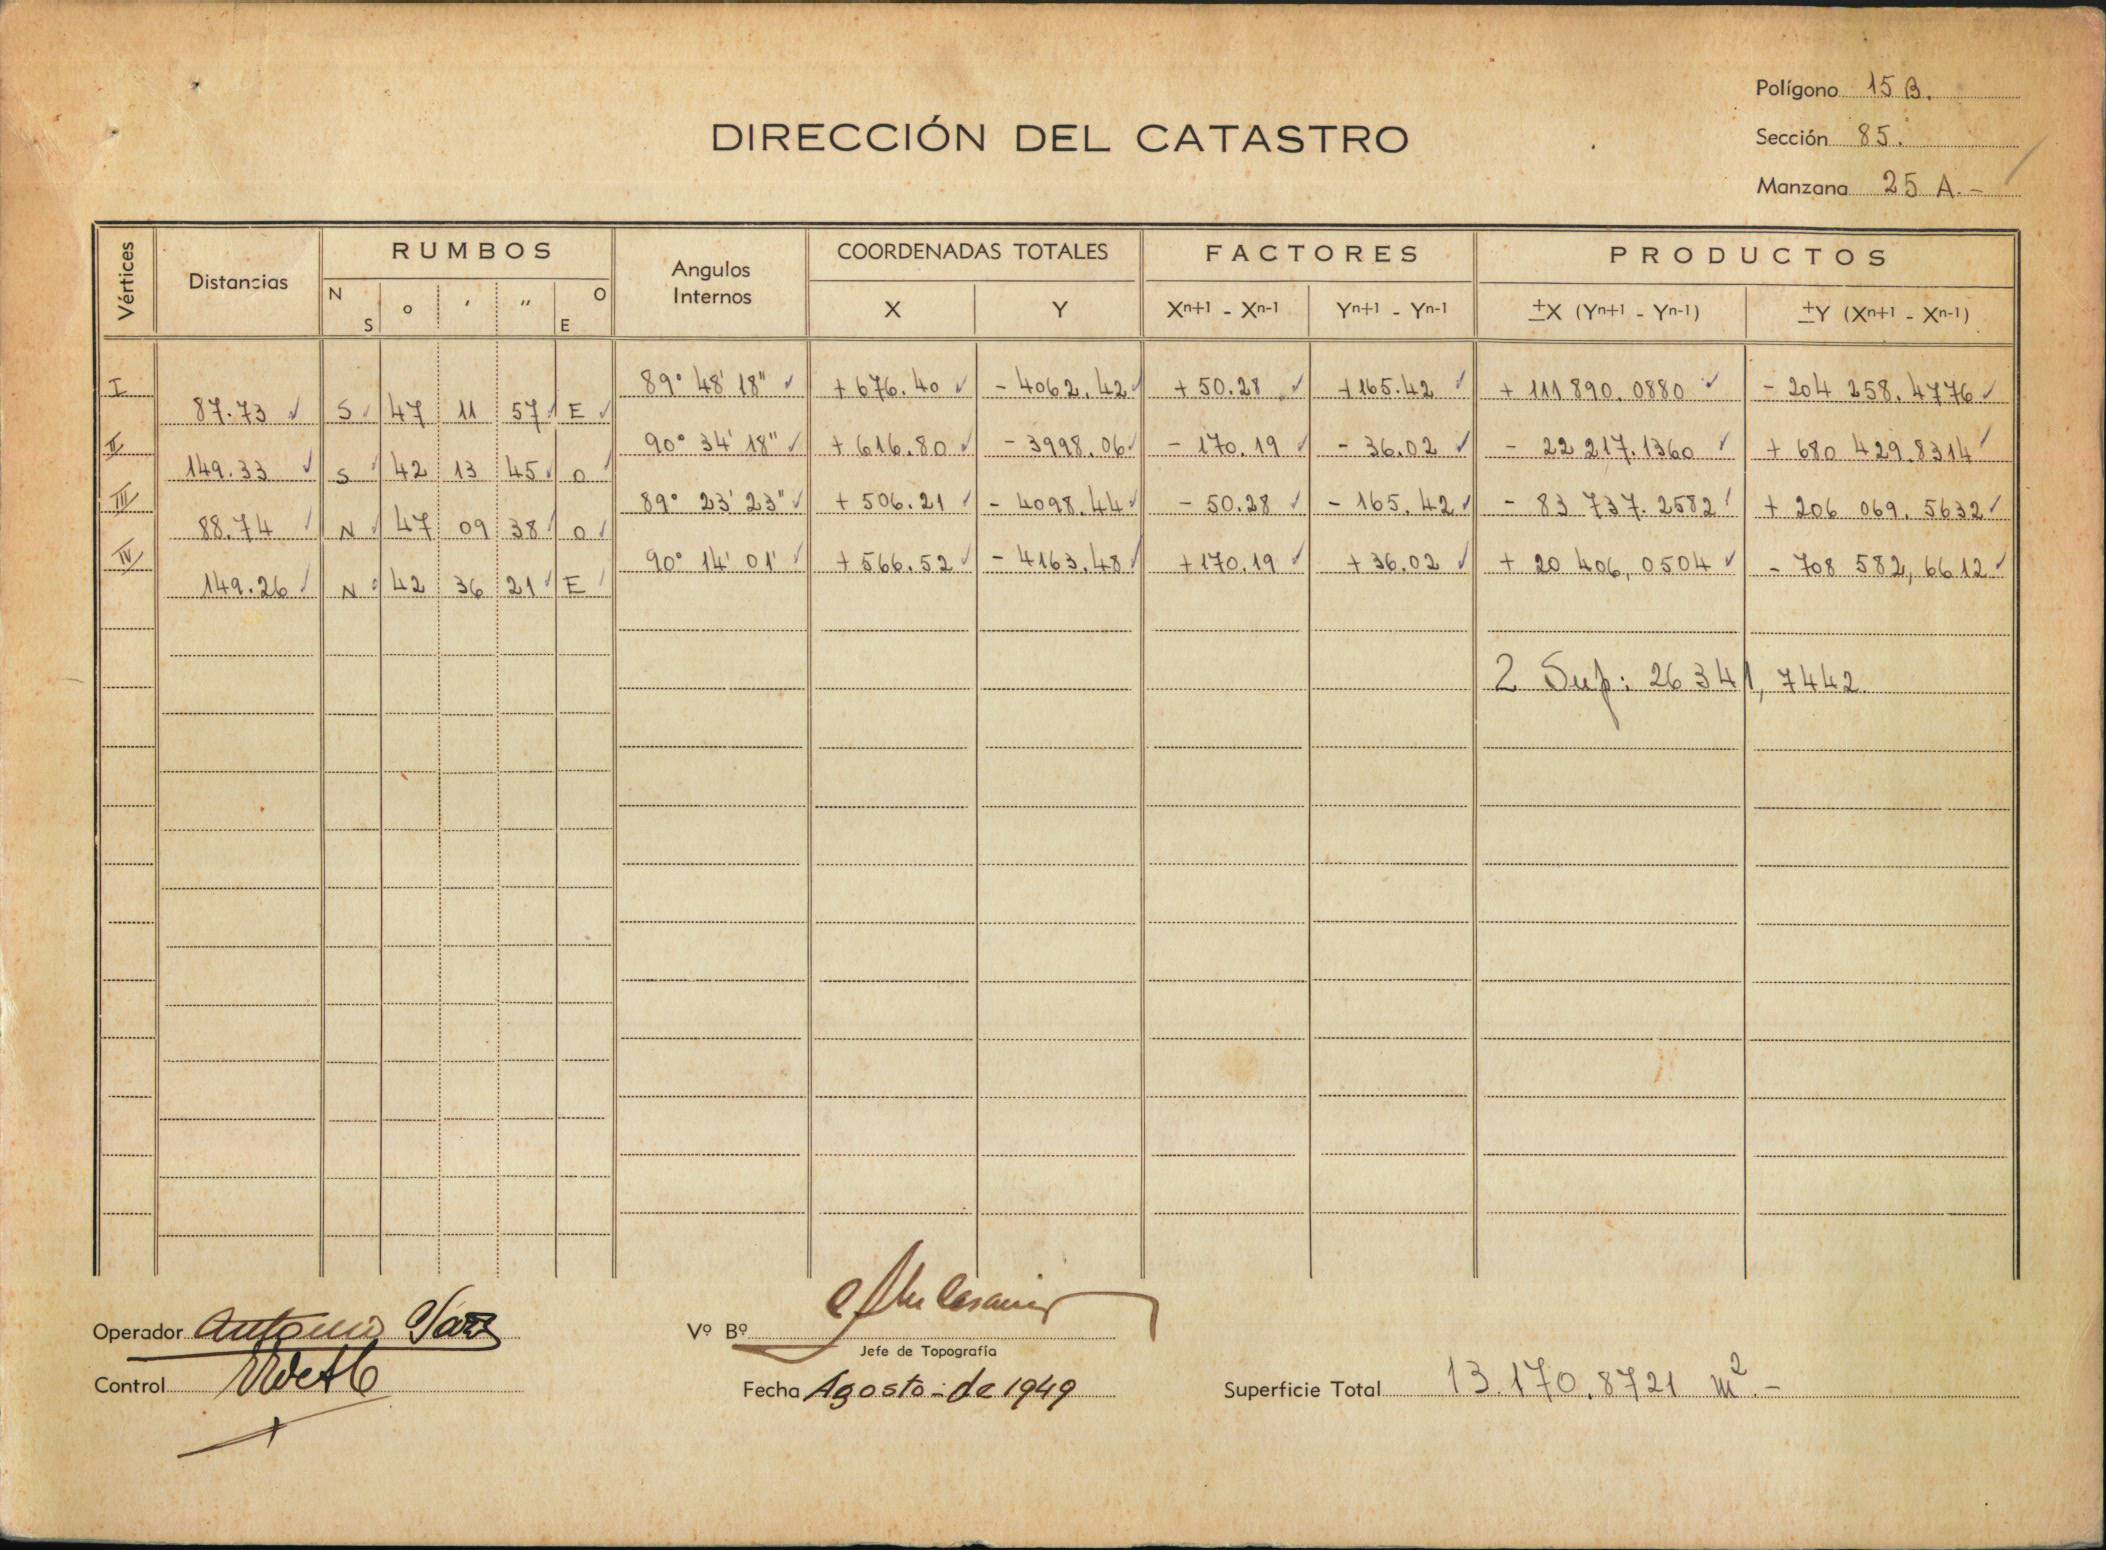 Polígono 15 B.
DIRECCIÓN DEL CATASTRO
Sección 85.
Manzana 25 A.-
Vértices Distancias RUMBOS Angulos Internos COORDENADAS TOTALES FACTORES PRODUCTOS
N S o ' " O E X Y Xn+1 - Xn-1 Yn+1 - Yn-1 ±X (Yn+1 - Yn-1) ±Y (Xn+1 - Xn-1)
I 89° 48' 18" + 676.40 - 4062.42 + 50.28 +165.42 + 111 890.0880 - 204 258.4776
87.73 S 47 11 57 E
II 90° 34' 18" + 616.80 - 3998.06 - 170.19 - 36.02 - 22 217.1360 + 680 429.8314
149.33 S 42 13 45 O
III 89° 23' 23" + 506.21 - 4098.44 - 50.28 - 165.42 - 83 737.2582 + 206 069.5632
88.74 N 47 09 38 O
IV 90° 14' 01' + 566.52 - 4163.48 +170.19 + 36.02 + 20 406,0504 - 708 582,6612
149.26 N 42 36 21 E
2 Sup: 26 341,7442
Operador Antonio
Vº Bº
Jefe de Topografía
Control
Fecha Agosto-de 1949
Superficie Total 13.170.8721 m².-